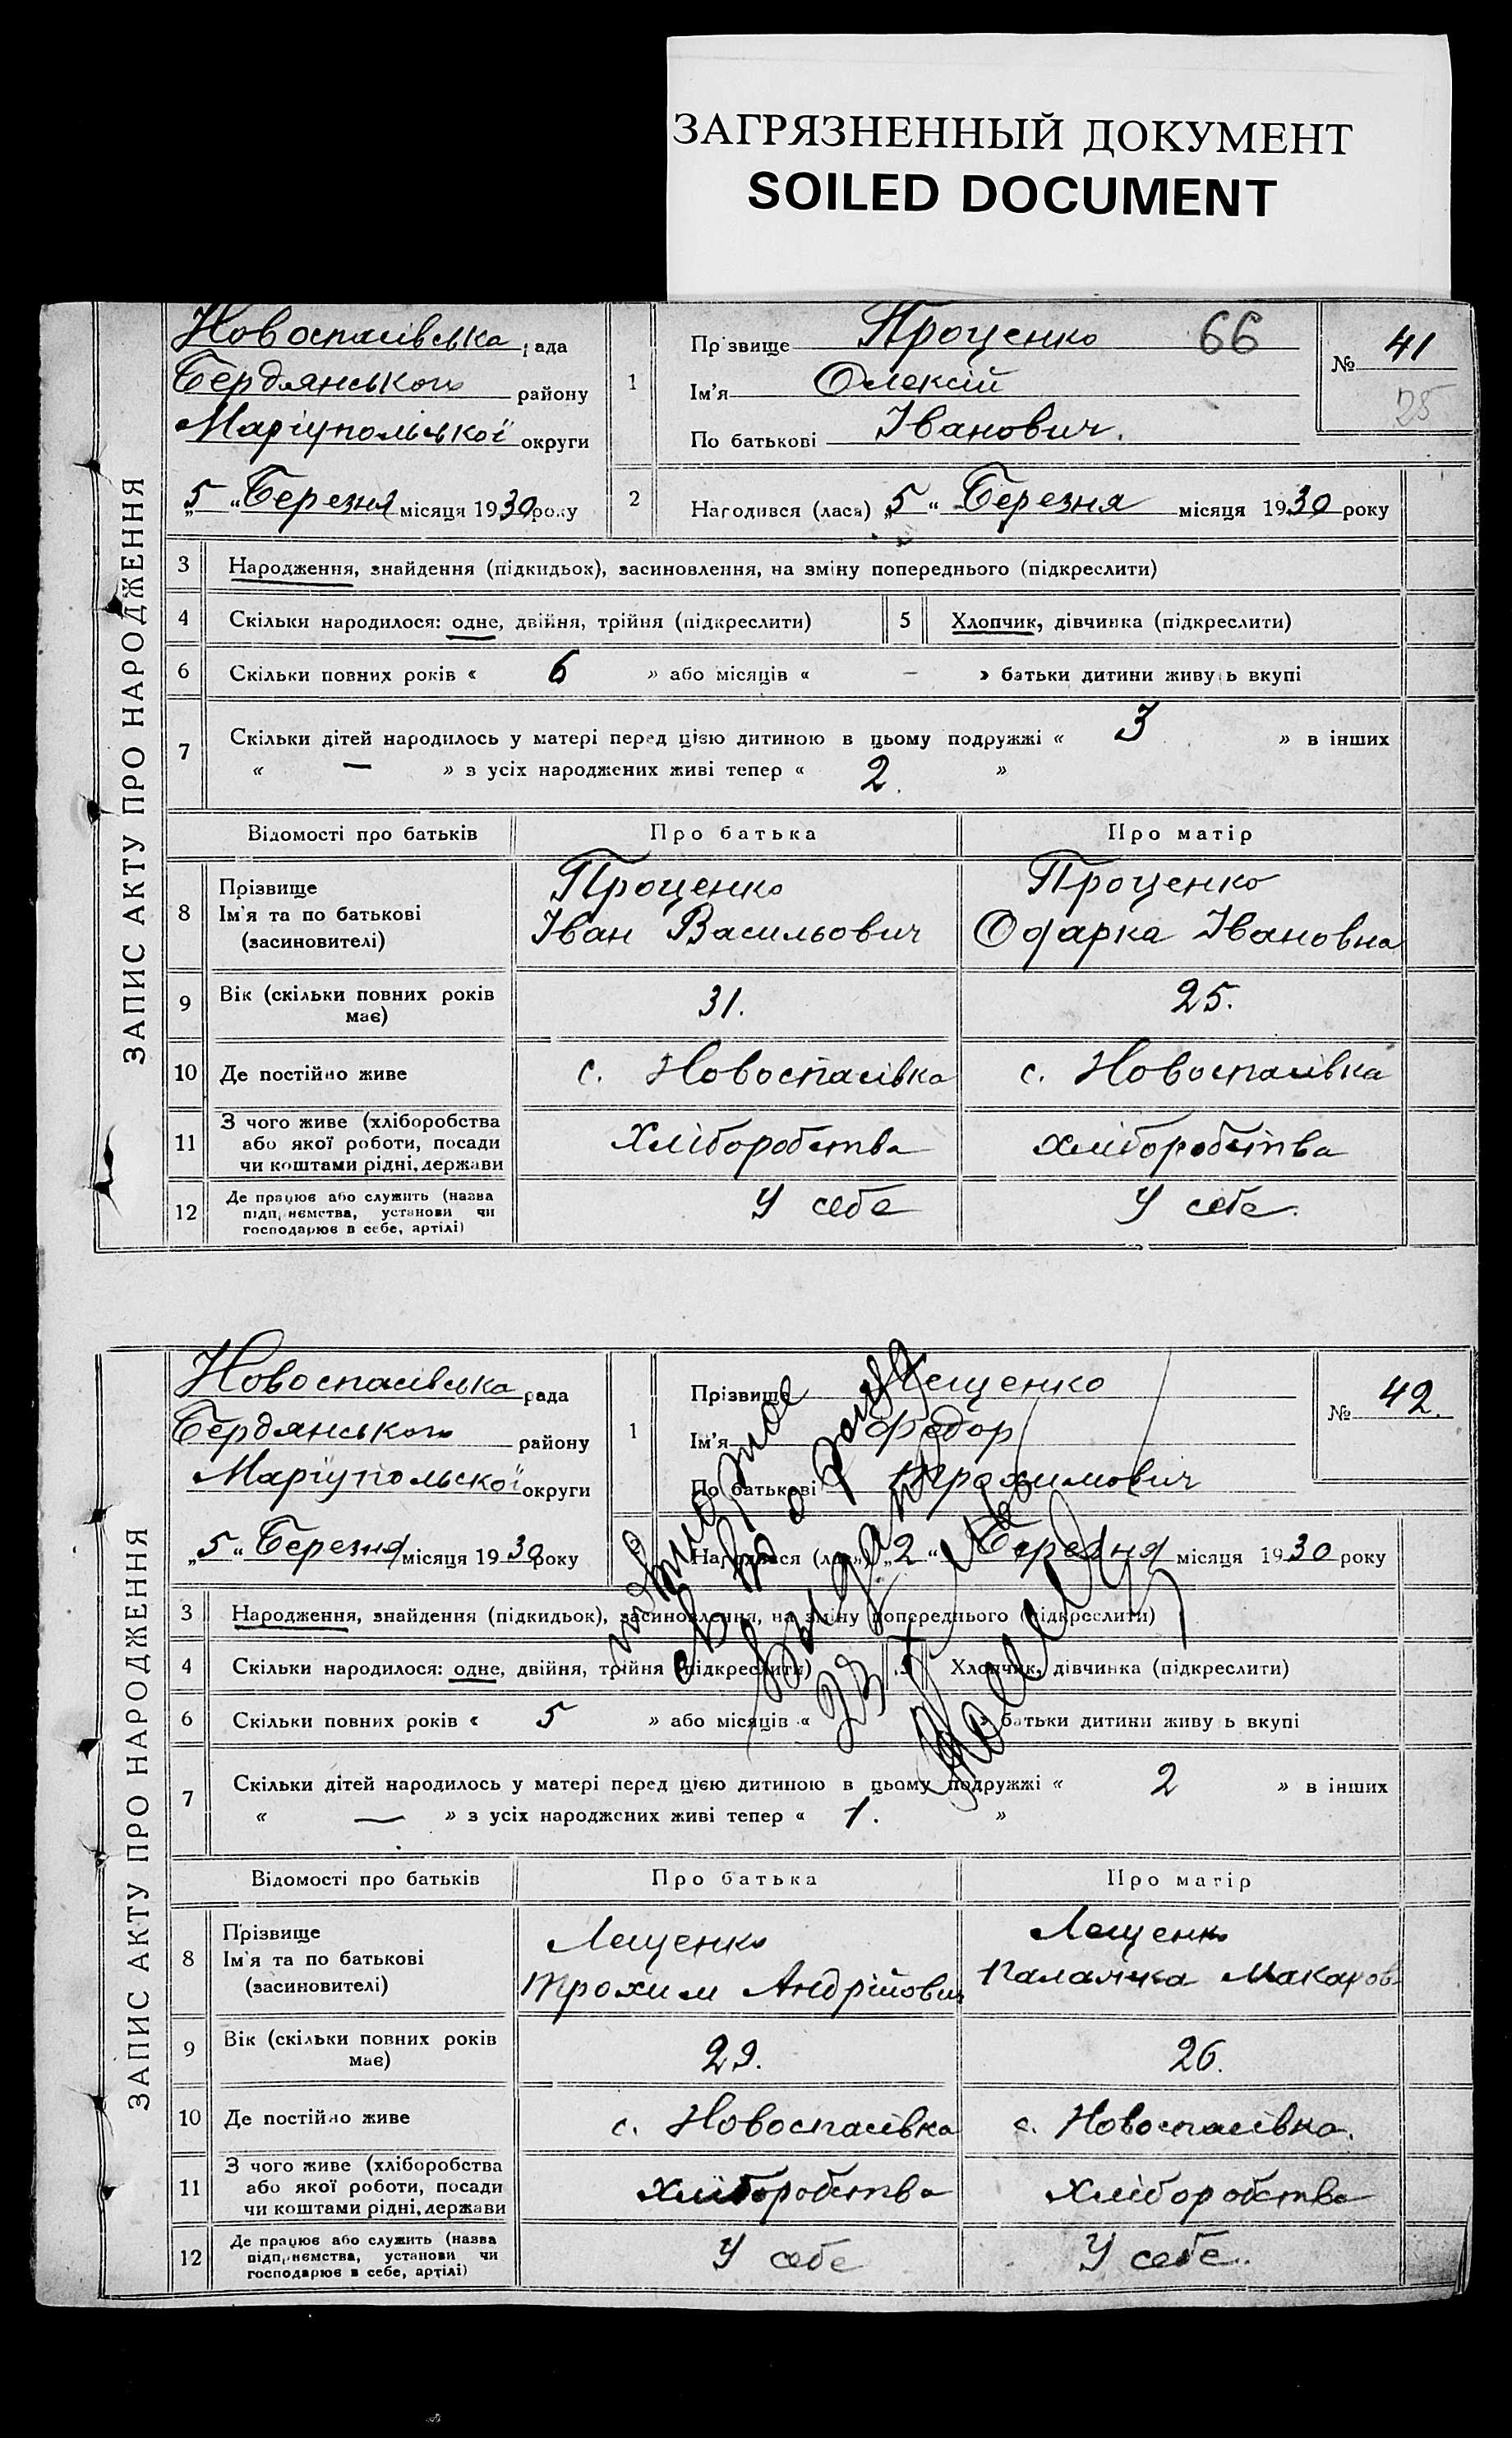 ЗАГРЯЗНЕННЫЙ ДОКУМЕНТ
SOILED DOCUMENT
ЗАПИС АКТУ ПРО НАРОДЖЕННЯ
Новоспасівська рада
Бердянського району
Маріупольської округи
„5“ Березня місяця 1930 року
1
Прізвище Проценко 66
Ім'я Олексій
По батькові Іванович.
№ 41
25
2 Народився (лася) „5“ Березня місяця 1930 року
3 Народження, знайдення (підкидьок), засиновлення, на зміну попереднього (підкреслити)
4 Скільки народилося: одне, двійня, трійня (підкреслити) 5 Хлопчик, дівчинка (підкреслити)
6 Скільки повних років « 6 » або місяців « — » батьки дитини живуть вкупі
7 Скільки дітей народилось у матері перед цією дитиною в цьому подружжі « 3 » в інших
« — » з усіх народжених живі тепер « 2. »
Відомості про батьків Про батька Про матір
8 Прізвище Проценко Проценко
Ім'я та по батькові Іван Васильович Одарка Івановна
(засиновителі)
9 Вік (скільки повних років має) 31. 25.
10 Де постійно живе с. Новоспасівка с. Новоспасівка
11 З чого живе (хліборобства
або якої роботи, посади Хліборобства хліборобства
чи коштами рідні, держави
12 Де працює або служить (назва
підприємства, установи чи У себе У себе.
господарює в себе, артілі)
ЗАПИС АКТУ ПРО НАРОДЖЕННЯ
Новоспасівська рада
Бердянського району
Маріупольскої округи
„5“ Березня місяця 1930 року
1
Прізвище Лещенко
Ім'я Федор
По батькові Трохимович
№ 42.
2 Народився (лася) „2“ Березня місяця 1930 року
повторное
св во о рожд
выдано
3 Народження, знайдення (підкидьок), засиновлення, на зміну попереднього (підкреслити)
4 Скільки народилося: одне, двійня, трійня (підкреслити) 5 Хлопчик, дівчинка (підкреслити)
6 Скільки повних років « 5 » або місяців « » батьки дитини живуть вкупі
7 Скільки дітей народилось у матері перед цією дитиною в цьому подружжі « 2 » в інших
« — » з усіх народжених живі тепер « 1. »
Відомості про батьків Про батька Про матір
8 Прізвище Лещенко Лещенко
Ім'я та по батькові Трохим Андрійович Палажка Макаров
(засиновителі)
9 Вік (скільки повних років має) 29. 26.
10 Де постійно живе с. Новоспасівка с. Новоспасівка.
11 З чого живе (хліборобства
або якої роботи, посади хліборобства хліборобства
чи коштами рідні, держави
12 Де працює або служить (назва
підприємства, установи чи У себе У себе.
господарює в себе, артілі)